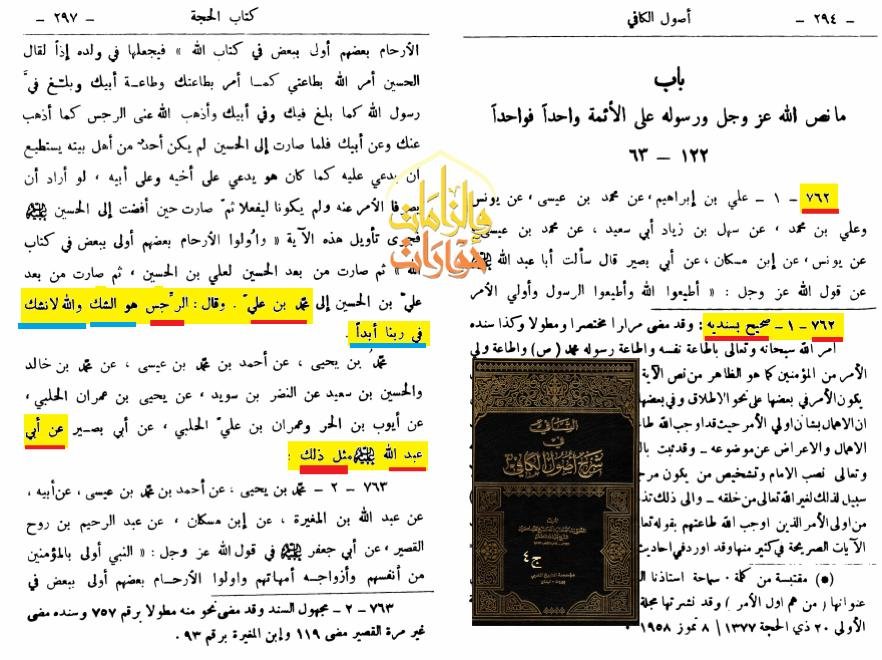 ـ ٢٩٤ ـ أصول الكافي
باب
ما نص الله عز وجل ورسوله على الأئمة واحداً فواحداً
١٢٢ ـ ٦٣
٧٦٢ ـ ١ ـ علي بن إبراهيم، عن محمد بن عيسى، عن يونس
وعلي بن محمد، عن سهل بن زياد أبي سعيد، عن محمد بن عيسى،
عن يونس، عن إبن مسكان، عن أبي بصير قال سألت أبا عبد الله
عن قول الله عز وجل: « أطيعوا الله وأطيعوا الرسول وأولي الأمر
٧٦٢ ـ ١ ـ صحيح بسنديه: وقد مضى مرارا مختصرا ومطولا وكذا سنده
امر الله سبحانه وتعالى باطاعة نفسه واطاعة رسوله محمد (ص) واطاعة ولي
الأمر من المؤمنين كما هو الظاهر من نص الآية
يكون الأمر في بعضها على نحو الاطلاق وفي بعضها
ان الاهمال بشأن اولي الأمر حيث قد اوجب الله
الاهمال والاعراض عن موضوعه ـ وقد ثبت
وتعالى نصب الامام وتشخيص من يكون
سبيل لذلك لغير الله تعالى من خلقه ـ والى ذلك
من اولى الأمر الذين اوجب الله طاعتهم بقوله
الآيات الصريحة في كثير منها وقد اورد في
(●) مقتبسة من كلمة سماحة استاذنا
عنوانها (من هم اول الأمر) وقد نشرتها مجلة
الأولى ٢٠ ذي الحجة ١٣٧٧ / ٨ تموز ١٩٥٨
الشافي
في
شرح أصول الكافي
ج٤
كتاب الحجة ـ ٢٩٧ ـ
الأرحام بعضهم أولى ببعض في كتاب الله » فيجعلها في ولده إذاً لقال
الحسين أمر الله بطاعتي كما أمر بطاعتك وطاعة أبيك وبلغ فيَّ
رسول الله كما بلغ فيك وفي أبيك وأذهب الله عني الرجس كما أذهب
عنك وعن أبيك فلما صارت إلى الحسين لم يكن أحد من أهل بيته يستطيع
ان يدعي عليه كما كان هو يدعي على أخيه وعلى أبيه، لو أراد أن
يصرفا الأمر عنه ولم يكونا ليفعلا ثمّ صارت حين أفضت إلى الحسين
فجرى تأويل هذه الآية « واُولوا الأرحام بعضهم أولى ببعض في كتاب
الله » ثم صارت من بعد الحسين لعلي بن الحسين، ثم صارت من بعد
عليّ بن الحسين إلى محمّد بن عليّ. وقال: الرِّجس هو الشك والله لا نشك
في ربنا أبداً.
محمّد بن يحيى، عن أحمد بن محمّد بن عيسى، عن محمّد بن خالد
والحسين بن سعيد عن النضر بن سويد، عن يحيى بن عمران الحلبي،
عن أيوب بن الحر وعمران بن عليّ الحلبي، عن أبي بصير عن أبي
عبد الله مثل ذلك:
٧٦٣ ـ ٢ ـ محمّد بن يحيى، عن أحمد بن محمّد بن عيسى، عن أبيه،
عن عبد الله بن المغيرة، عن إبن مسكان، عن عبد الرحيم بن روح
القصير، عن أبي جعفر في قول الله عز وجل: « النبي أولى بالمؤمنين
من أنفسهم وأزواجه أمهاتهم واولوا الأرحام بعضهم أولى ببعض في
٧٦٣ ـ ٢ ـ مجهول السند وقد مضى نحو منه مطولا برقم ٧٥٧ وسنده مضى
غير مرة القصير مضى ١١٩ وابن المغيرة برقم ٩٣.
حوارات
والزامات